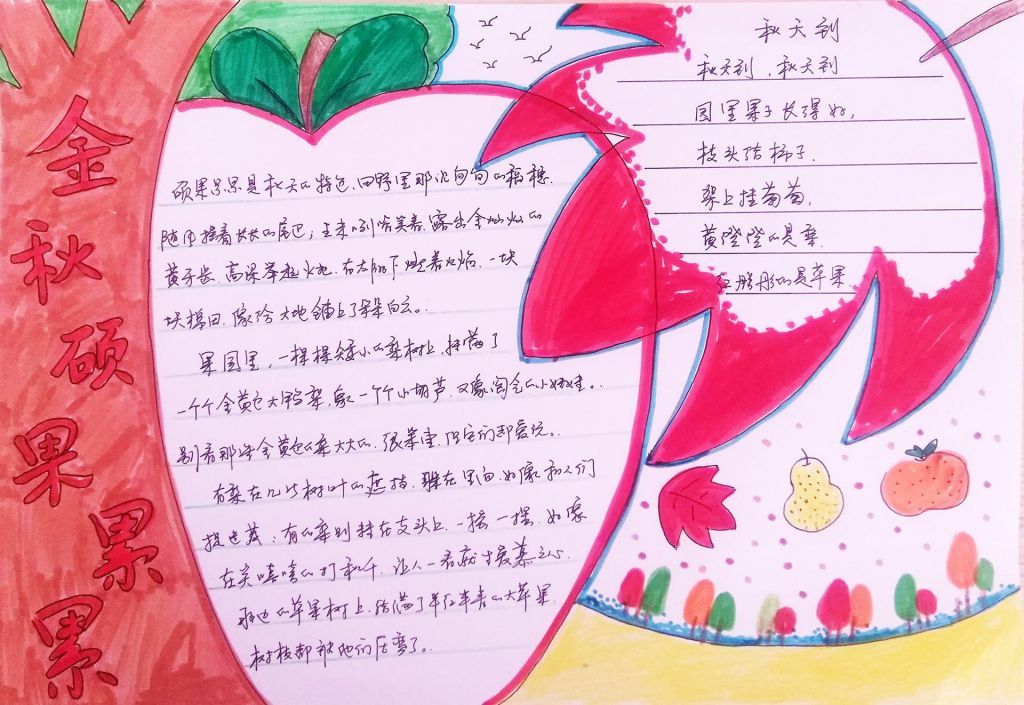 金秋硕果累累
硕果累累是秋天的特色.田野里那沉甸甸的稻穗.
随风摇着长长的尾巴；玉米咧嘴笑着.露出金灿灿的
黄牙齿.高梁举起火把.在太阳下燃着火焰.一块
块棉田.像给大地铺上了朵朵白云。.
果园里，一棵棵矮小的梨树上.挂满了
一个个金黄色大鸭梨.象一个个小葫芦.又像淘气的小娃娃。.
别看那些金黄色的梨大大的.
有梨在几片树叶的遮挡.躲在里面.好像和人们
捉迷藏；有的梨则挂在支头上.一摇一摆.好像
在笑嘻嘻的打秋千.让人一看就生爱慕之心.
那边的苹果树上.结满了半红半青的大苹果.
树枝都被他们压弯了。.
秋天到
秋天到.秋天到
园里果子长得好,
枝头结柿子.
架上挂葡萄,
黄澄澄的是梨.
红彤彤的是苹果.